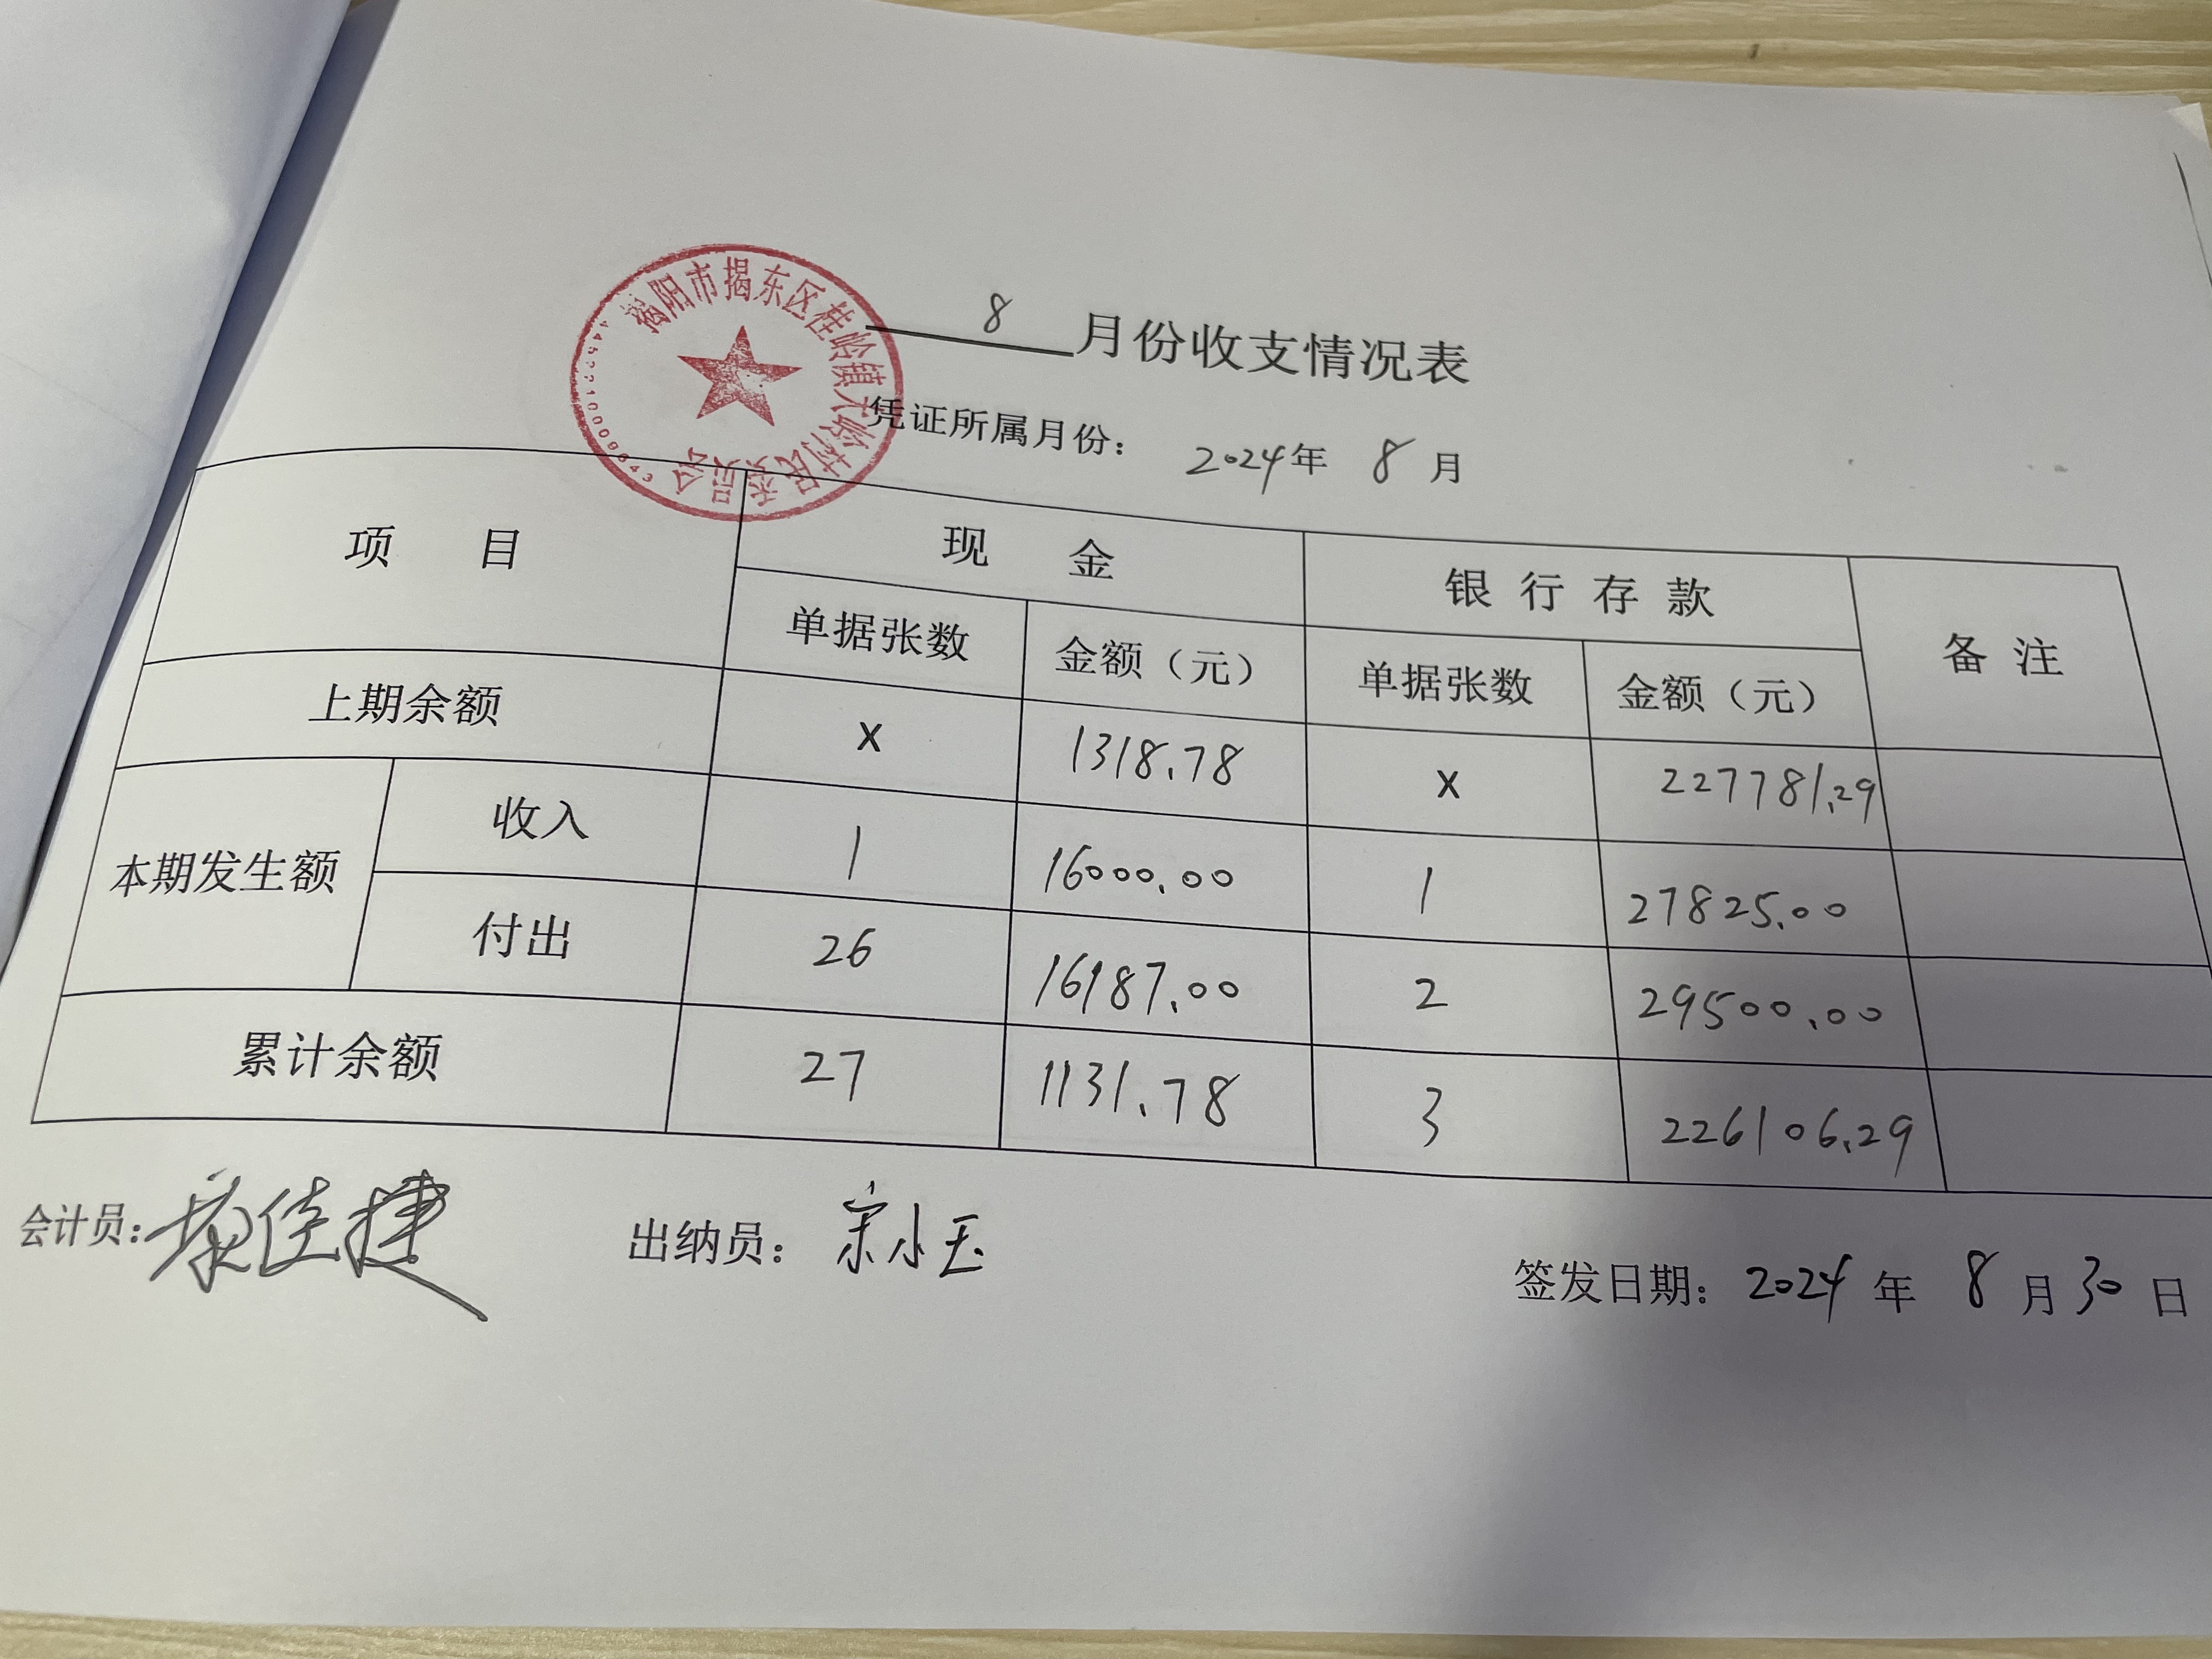 揭阳市揭东区桂岭镇大岭村民委员会
8 月份收支情况表
凭证所属月份： 2024年 8 月
项 目 现 金 银行存款 备注
单据张数 金额（元） 单据张数 金额（元）
上期余额 X 1318.78 X 227781.29
本期发生额 收入 1 16000.00 1 27825.00
付出 26 16187.00 2 29500.00
累计余额 27 1131.78 3 226106.29
会计员：康佳捷 出纳员：宋小玉
签发日期：2024 年 8 月 30 日